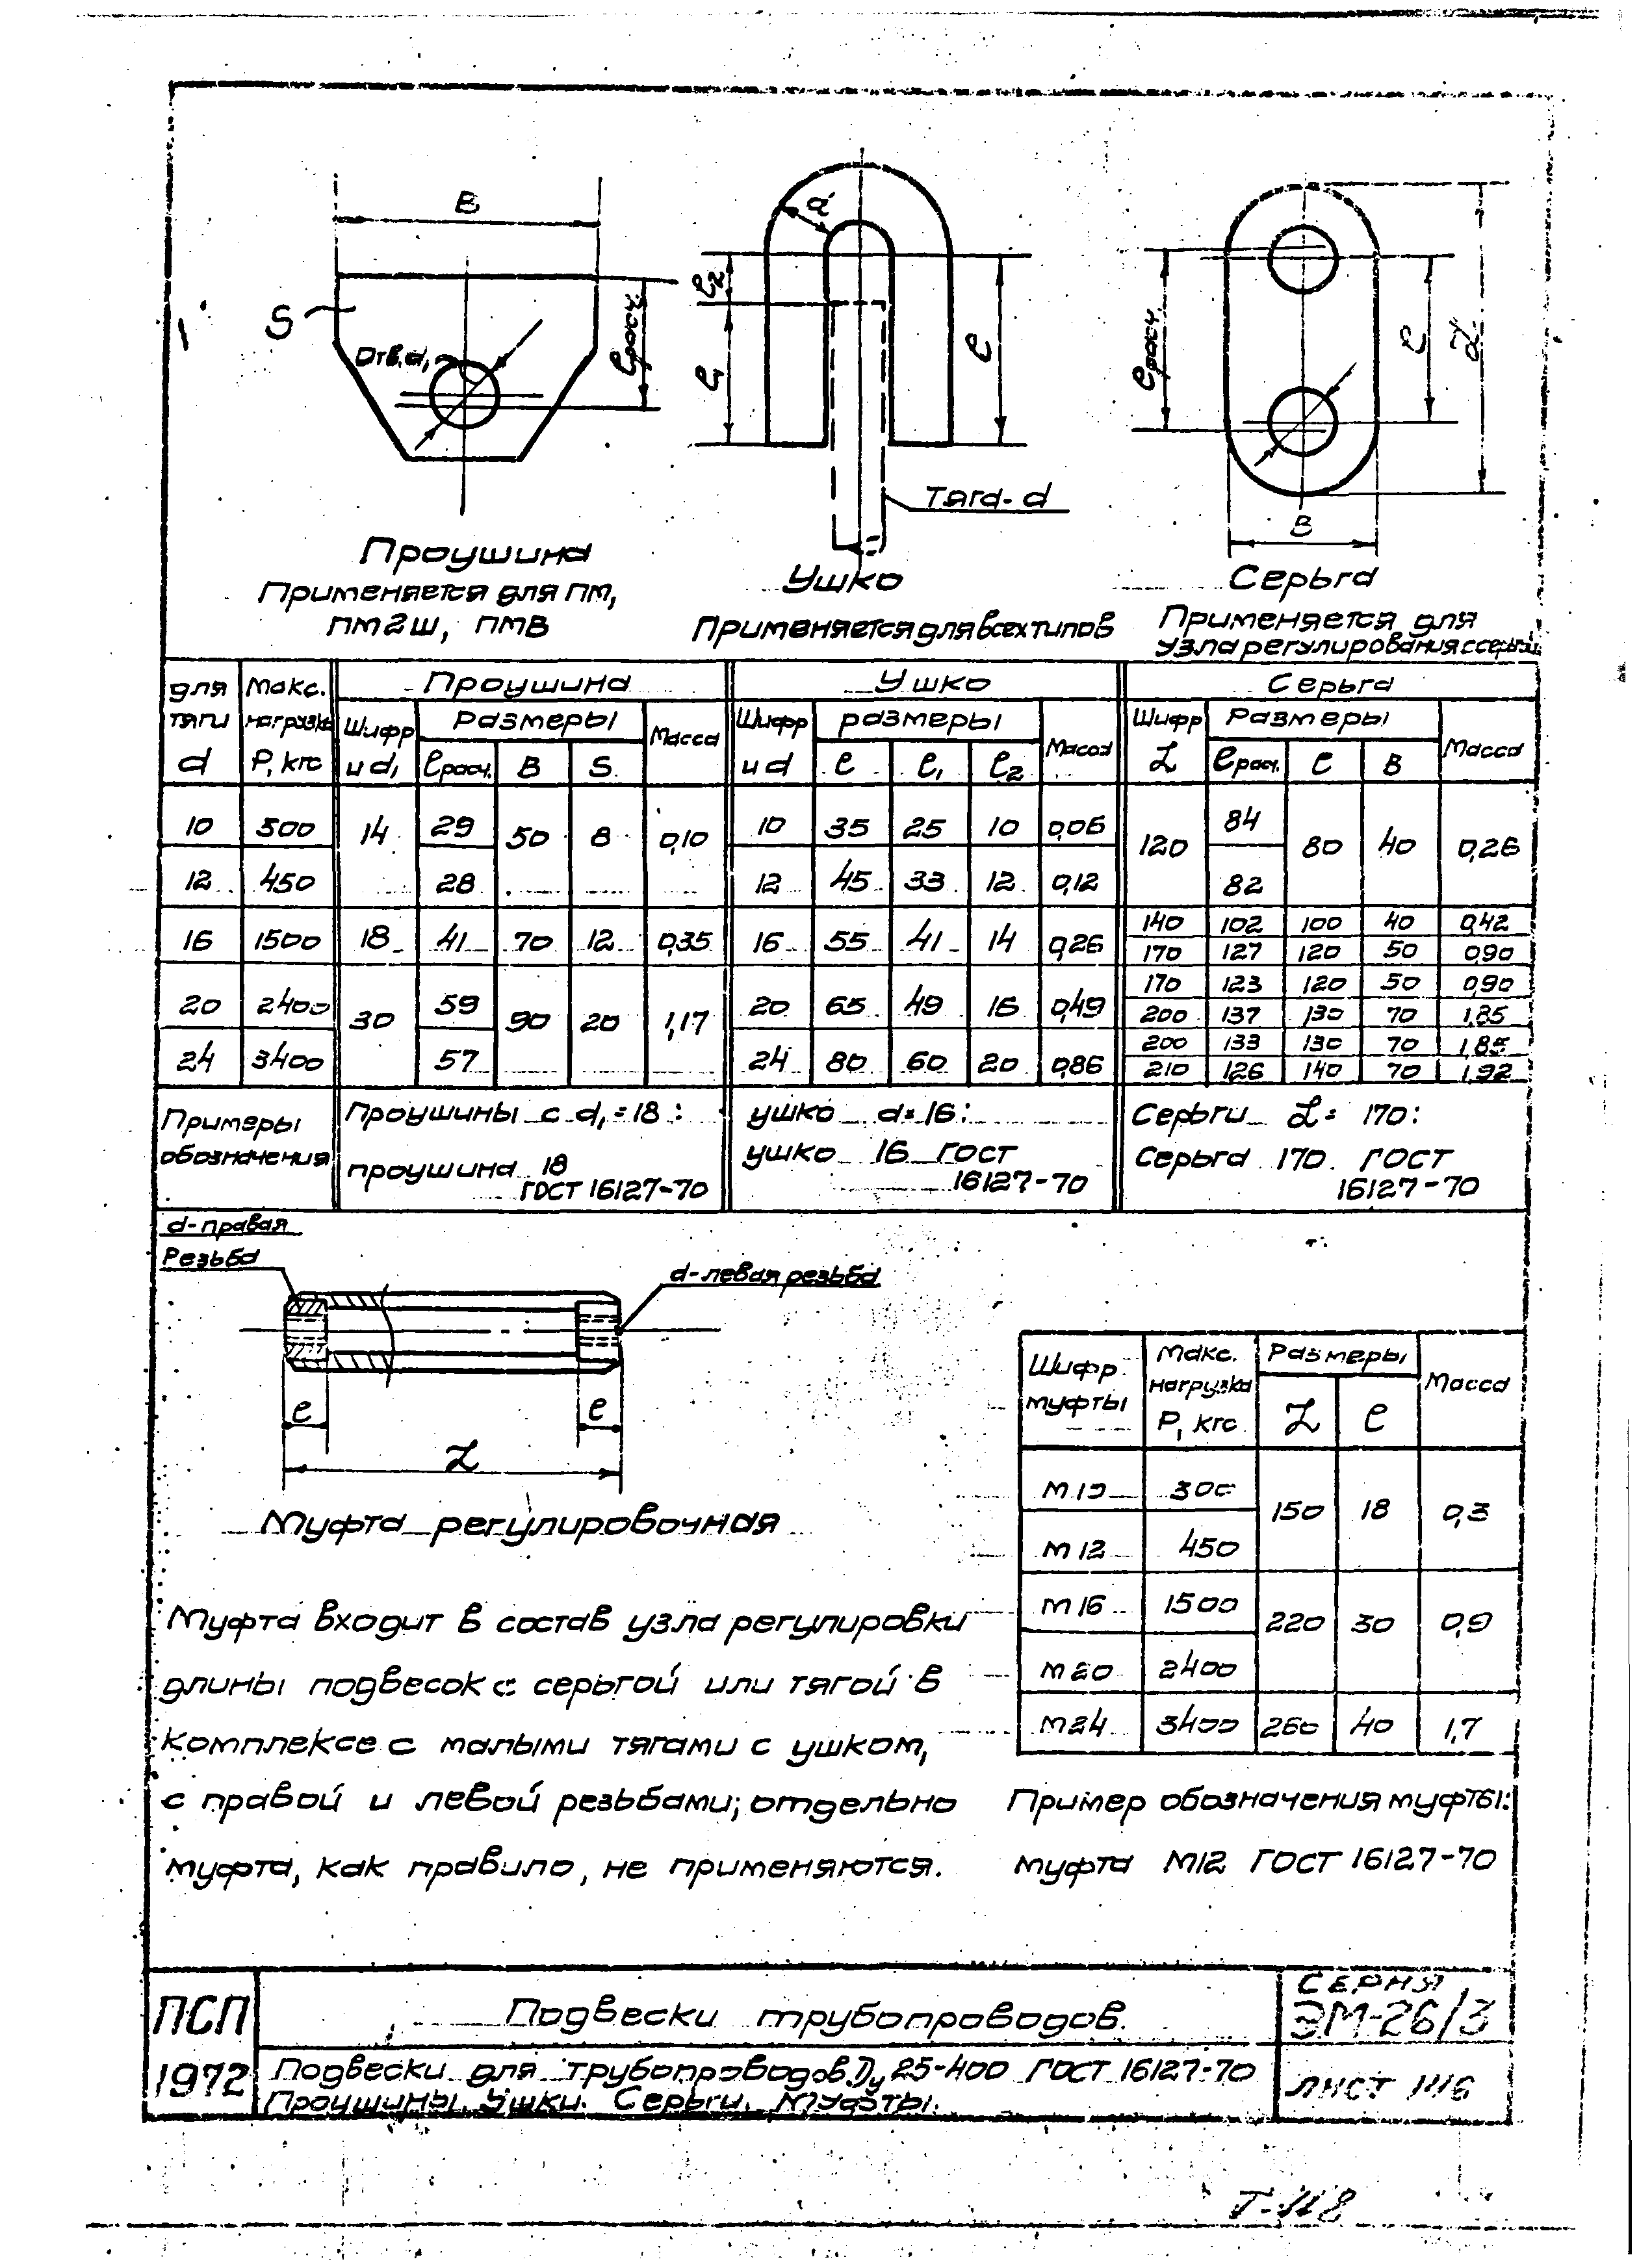 B
S
Отв. d₁
ℓрасч.
Проушина
Применяется для ПМ,
ПМ2Ш, ПМВ
d
ℓ₂
ℓ₁
ℓ
Тяга-d
Ушко
Применяется для всех типов
ℓрасч.
ℓ
L
B
Серьга
Применяется для
узла регулирования с серьгой
для тяги d | Макс. нагрузка P, кгс | Проушина | Ушко | Серьга
Шифр и d₁ | Размеры | Масса | Шифр и d | размеры | Масса | Шифр L | Размеры | Масса
ℓрасч. | B | S | ℓ | ℓ₁ | ℓ₂ | ℓрасч. | ℓ | B
10 | 300 | 14 | 29 | 50 | 8 | 0,10 | 10 | 35 | 25 | 10 | 0,06 | 120 | 84 | 80 | 40 | 0,26
12 | 450 | 28 | 12 | 45 | 33 | 12 | 0,12 | 82
16 | 1500 | 18 | 41 | 70 | 12 | 0,35 | 16 | 55 | 41 | 14 | 0,26 | 140 | 102 | 100 | 40 | 0,42
170 | 127 | 120 | 50 | 0,90
20 | 2400 | 30 | 59 | 90 | 20 | 1,17 | 20 | 65 | 49 | 16 | 0,49 | 170 | 123 | 120 | 50 | 0,90
200 | 137 | 130 | 70 | 1,85
24 | 3400 | 57 | 24 | 80 | 60 | 20 | 0,86 | 200 | 133 | 130 | 70 | 1,85
210 | 126 | 140 | 70 | 1,92
Примеры
обозначения
Проушины с d₁=18:
проушина 18
ГОСТ 16127-70
ушко d=16:
ушко 16 ГОСТ
16127-70
Серьги L= 170:
Серьга 170 ГОСТ
16127-70
d-правая
Резьба
d-левая резьба
ℓ
ℓ
L
Муфта регулировочная
Шифр муфты | Макс. нагрузка P, кгс | Размеры | Масса
L | ℓ
М10 | 300 | 150 | 18 | 0,3
М12 | 450
М16 | 1500 | 220 | 30 | 0,9
М20 | 2400
М24 | 3400 | 260 | 40 | 1,7
Муфта входит в состав узла регулировки
длины подвесок с серьгой или тягой в
комплексе с малыми тягами с ушком,
с правой и левой резьбами; отдельно
муфта, как правило, не применяются.
Пример обозначения муфты:
муфта М12 ГОСТ 16127-70
ПСП
1972
Подвески трубопроводов.
Подвески для трубопроводов. Dy 25-400 ГОСТ 16127-70
Проушины. Ушки. Серьги. Муфты.
СЕРИЯ
ЭМ-26/3
ЛИСТ
Т-118